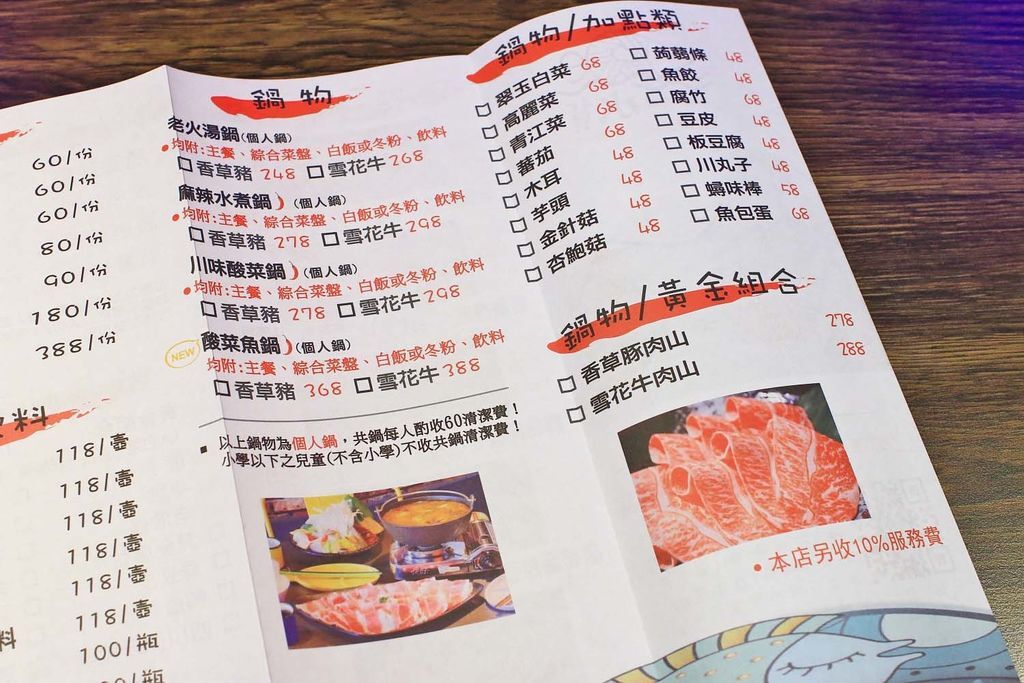 60/份
60/份
60/份
80/份
90/份
180/份
388/份
料
118/壺
118/壺
118/壺
118/壺
118/壺
118/壺
料 100/瓶
/瓶
鍋物
老火湯鍋(個人鍋)
•均附:主餐、綜合菜盤、白飯或冬粉、飲料
□香草豬 248 □雪花牛 268
麻辣水煮鍋 (個人鍋)
•均附:主餐、綜合菜盤、白飯或冬粉、飲料
□香草豬 278 □雪花牛 298
川味酸菜鍋 (個人鍋)
•均附:主餐、綜合菜盤、白飯或冬粉、飲料
□香草豬 278 □雪花牛 298
NEW 酸菜魚鍋 (個人鍋)
均附:主餐、綜合菜盤、白飯或冬粉、飲料
□香草豬 368 □雪花牛 388
▪ 以上鍋物為個人鍋，共鍋每人酌收60清潔費！
小學以下之兒童(不含小學)不收共鍋清潔費！
鍋物/加點類
□ 翠玉白菜 68
□ 高麗菜 68
□ 青江菜 68
□ 蕃茄 68
□ 木耳 48
□ 芋頭 48
□ 金針菇 48
□ 杏鮑菇 48
□ 蒟蒻條 48
□ 魚餃 48
□ 腐竹 68
□ 豆皮 48
□ 板豆腐 48
□ 川丸子 48
□ 蟳味棒 58
□ 魚包蛋 68
鍋物/黃金組合
□ 香草豚肉山 278
□ 雪花牛肉山 288
•本店另收10%服務費